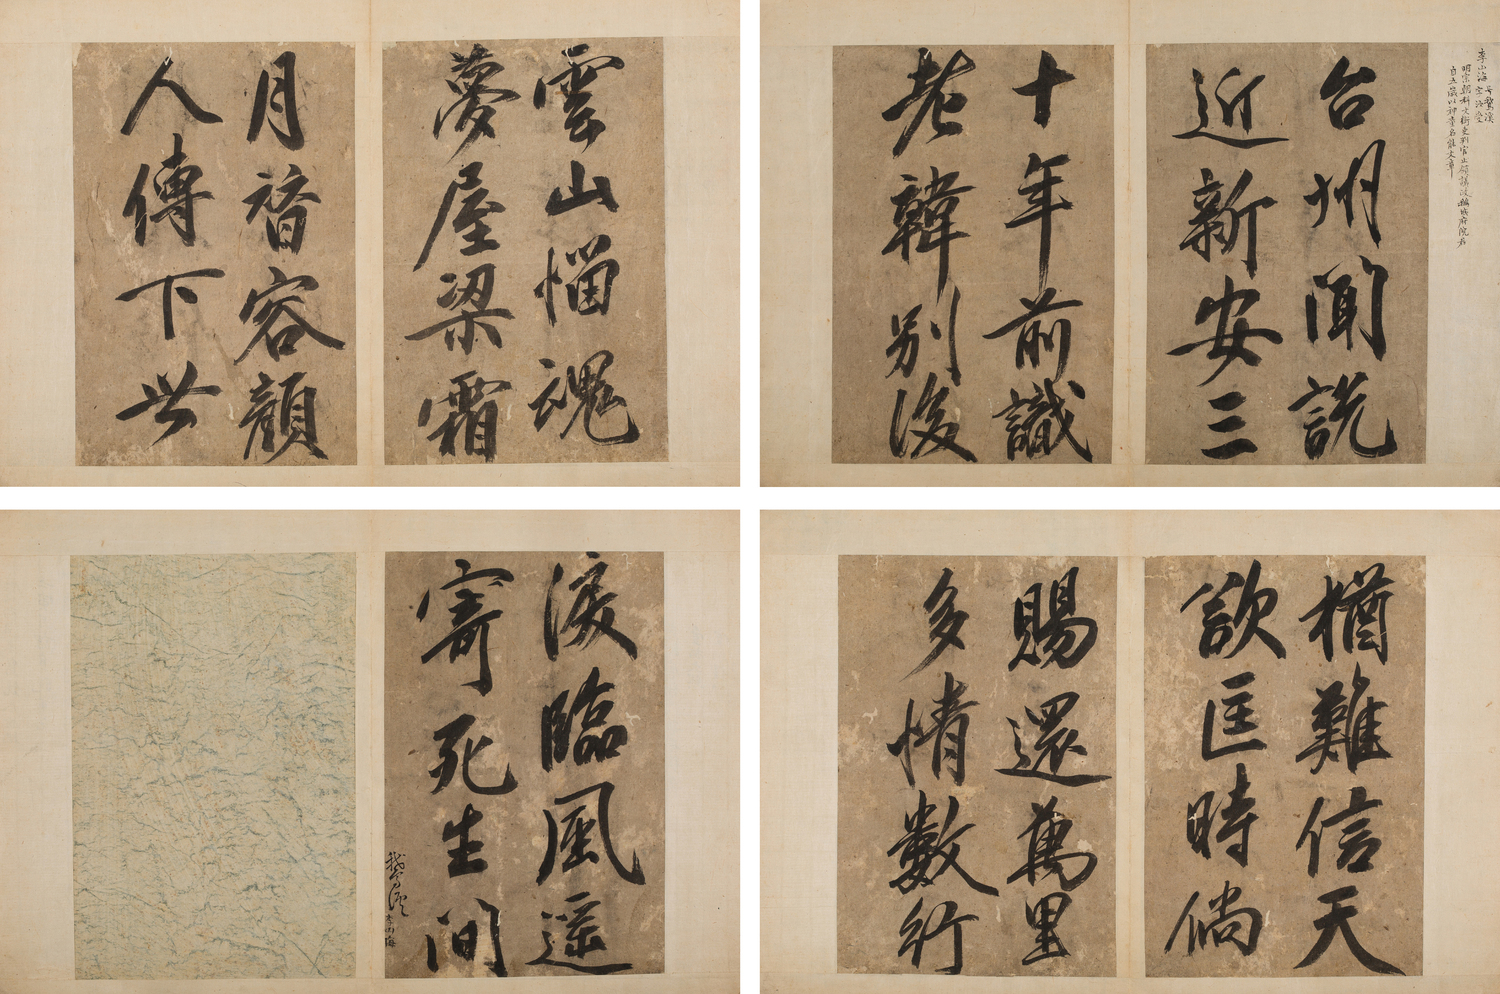 李山海 號鵝溪
字汝受
明宗朝科文衡吏判官止領議政鵝城府院君
自五歲以神童名能文章
台州聞說
近新安三
十年前識
老韓別後
雲山惱魂
夢屋梁霜
月容顏
人傳下世
猶難信天
欲匡時倘
賜還萬里
多情數行
淚臨風遙
寄死生間
鵝溪
李山海